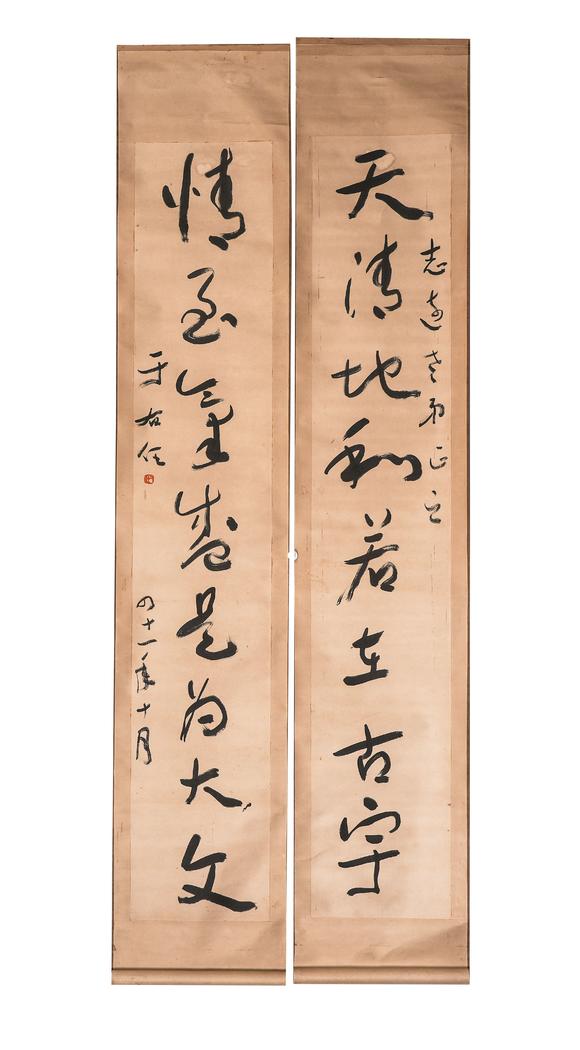 天清地和若在古宇
志遠老弟正之
情至氣盛是為大文
于右任
四十一年十月